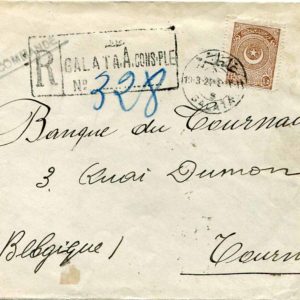 COMMANDÉ
R GALATA-A. CONS-PLE
Nº 328
GALATA
Banque du Tournai
3, Quai Dumon
Belgique / Tourn